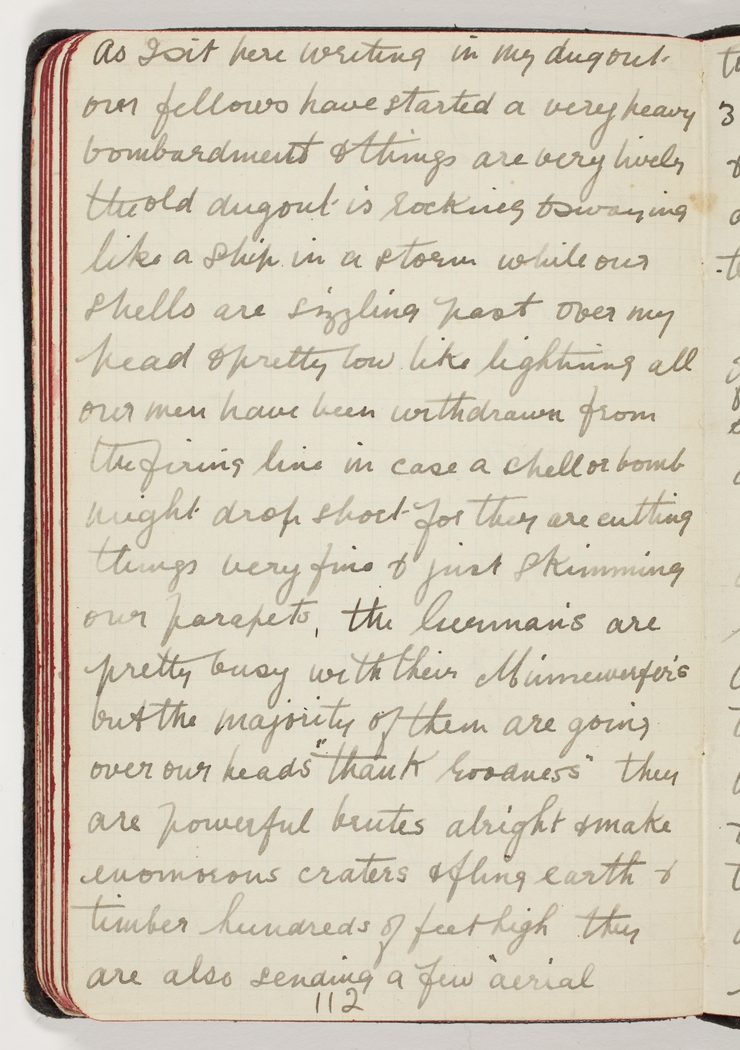 As I sit here writing in my dugout
our fellows have started a very heavy
bombardment & things are very lively
the old dugout is rocking & swaying
like a ship in a storm while our
shells are sizzling past over my
head & pretty low like lightning all
our men have been withdrawn from
the firing line in case a shell or bomb
might drop short for they are cutting
things very fine & just skimming
our parapets, the Germans are
pretty busy with their Minnewerfers
but the majority of them are going
over our heads "thank Goodness" they
are powerful brutes alright & make
enomorous craters & fling earth &
timber hundreds of feet high they
are also sending a few "aerial
112